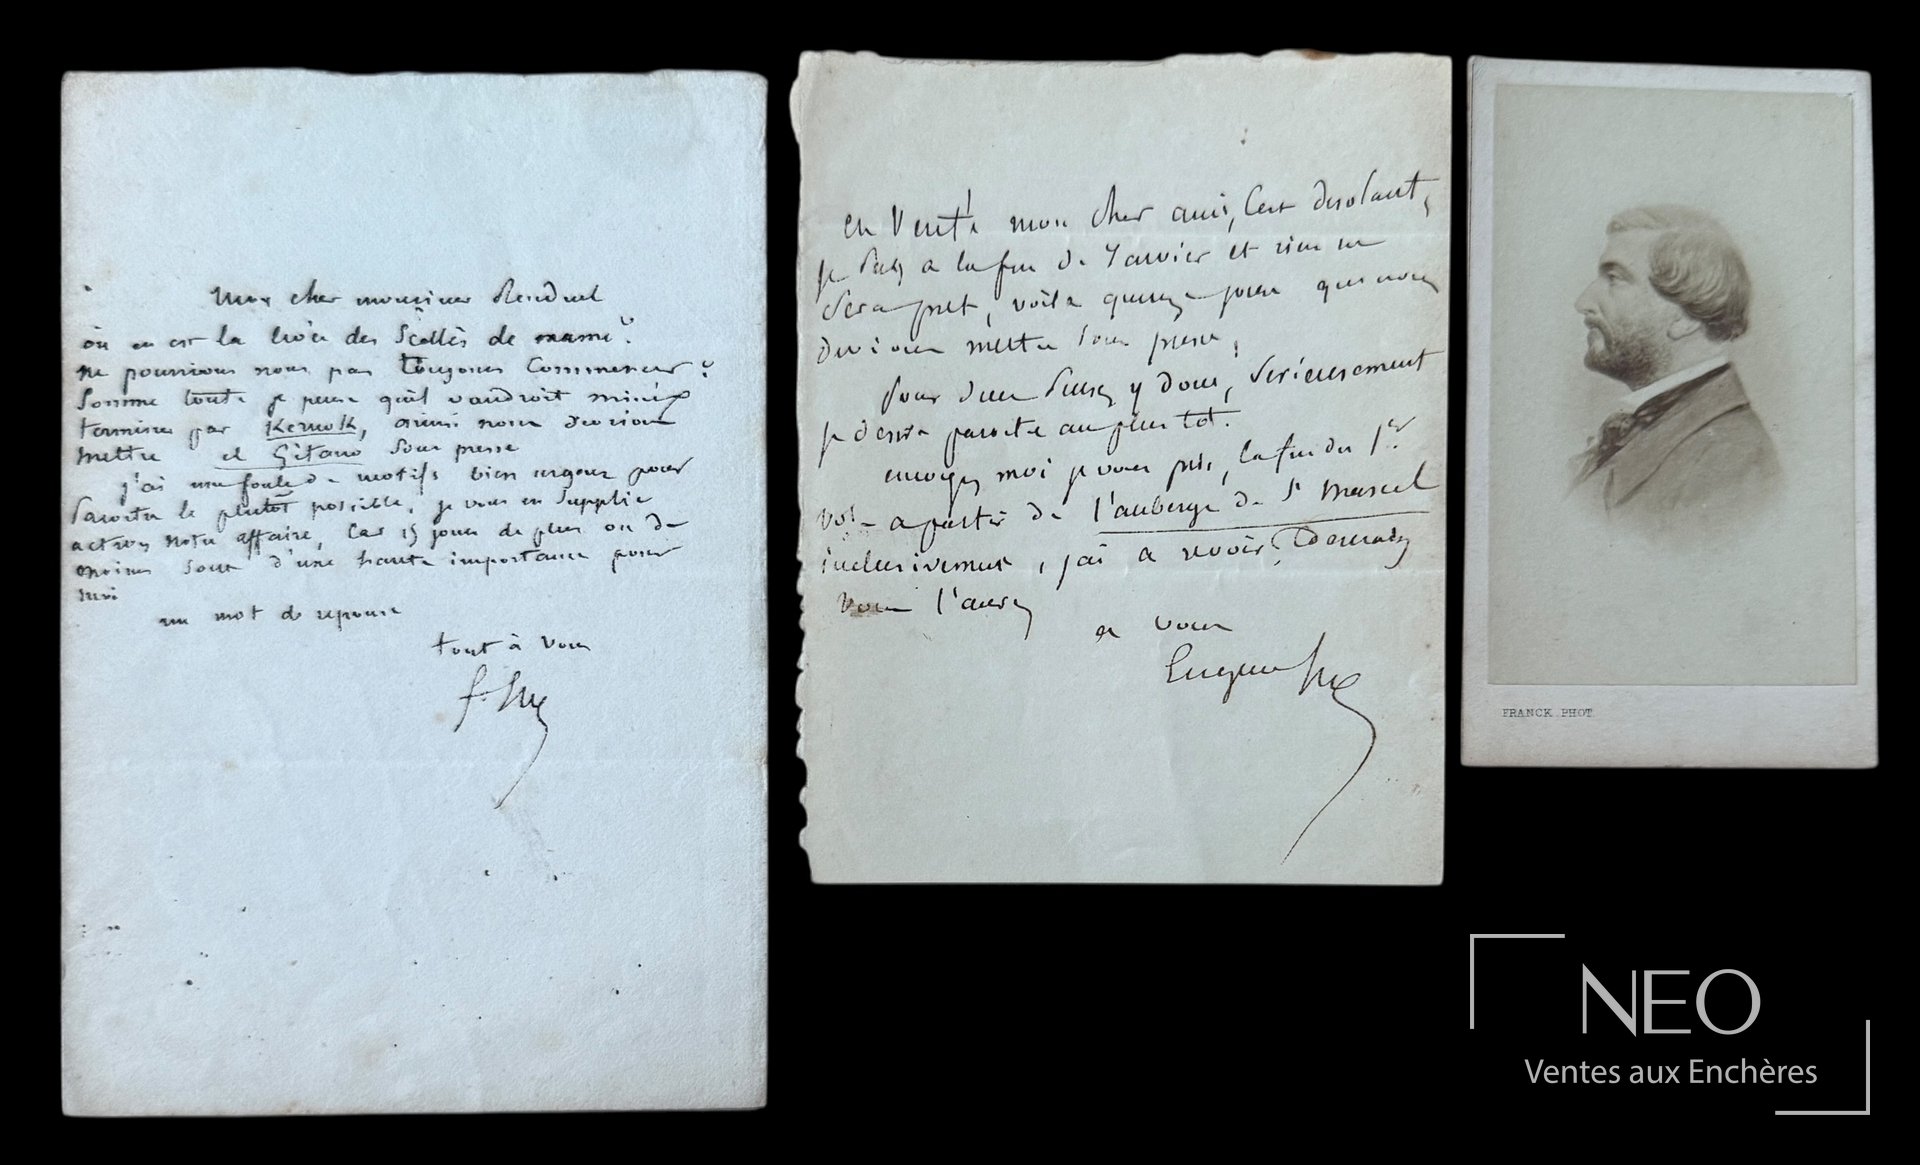 Mon cher monsieur Renduel
où en est la levée des Scellés de mame?
ne pourrions nous pas toujours Commencer?
Somme toute je pense qu'il vaudroit mieux
terminer par Kernok, ainsi nous devrions
mettre el Gitano Sous presse
j'ai une foule de motifs bien urgens pour
paroitre le plutôt possible, je vous en Supplie
activez notre affaire, Car 15 jours de plus ou de
moins Sont d'une haute importance pour
moi
un mot de reponse
tout à vous
E. Sue
en verité mon cher ami, C'est desolant,
je suis a la fin de Janvier et rien ne
Sera pret, voila quinze jours que nous
devions mettre Sous presse,
pour dieu pensez y donc, Serieusement
je desire paroitre au plus tot.
envoyez moi je vous prie, la fin du 1er
vol- a partir de l'auberge de St Marcel
inclusivement, j'ai a revoir, demain
vous l'aurez
a vous
Eugene Sue
FRANCK PHOT.
NEO
Ventes aux Enchères